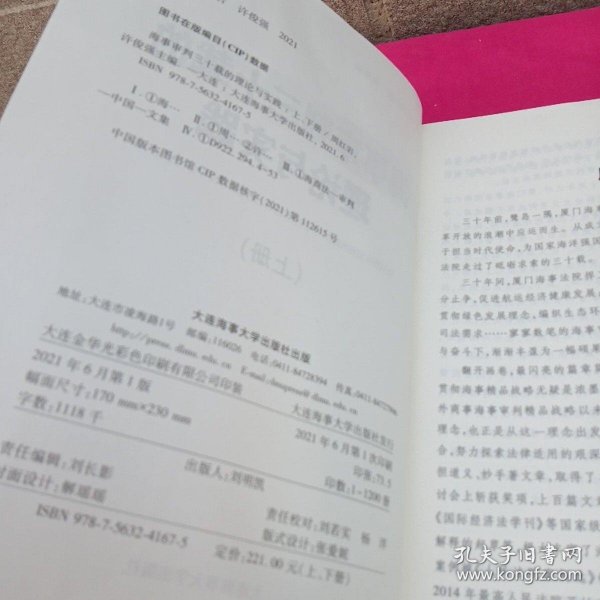 许俊强 2021
图书在版编目(CIP)数据
海事审判三十载的理论与实践:上、下册/周红岩,
许俊强主编. —大连:大连海事大学出版社,2021.6
ISBN 978-7-5632-4167-5
Ⅰ.①海… Ⅱ.①周… ②许… Ⅲ.①海商法—审判
—中国—文集 Ⅳ.①D922.294.4-53
中国版本图书馆CIP数据核字(2021)第112615号
(上册)
大连海事大学出版社出版
地址:大连市凌海路1号 邮编:116026 电话:0411-84728394 传真:0411-84727996
大连金华光彩色印刷有限公司印装
大连海事大学出版社发行
2021年6月第1版
2021年6月第1次印刷
幅面尺寸:170 mm×230 mm
印张:73.5
字数:1118千
印数:1~1200册
责任编辑:刘长影
出版人:刘明凯
封面设计:解瑶瑶
责任校对:刘若实 杨洋
版式设计:张爱妮
ISBN 978-7-5632-4167-5
定价:221.00元(上、下册)
三十年前,鹭岛一隅,厦门海事
革开放的浪潮中应运而生。从成立
于担当时代使命,为国家海洋强国
法院走过了砥砺求索的三十载。
三十年间,厦门海事法院
分止争,促进航运经济健康发展
贯彻绿色发展理念,编织生态环
司法需求……寥寥数笔的海事
与奋斗下,渐渐丰盈为一幅硕果
翻开画卷,最闪亮的篇章
贯彻海事精品战略无疑是浓墨
外商事海事审判精品战略以来
理念,也正是从这一理念出发
合,努力探索法律适用的艰深
担道义、妙手著文章,取得了
讨会上斩获奖项,上百篇文章
《国际经济法学刊》等国家级
2014年最高人民法院
孔夫子旧书网
www.kongfz.com